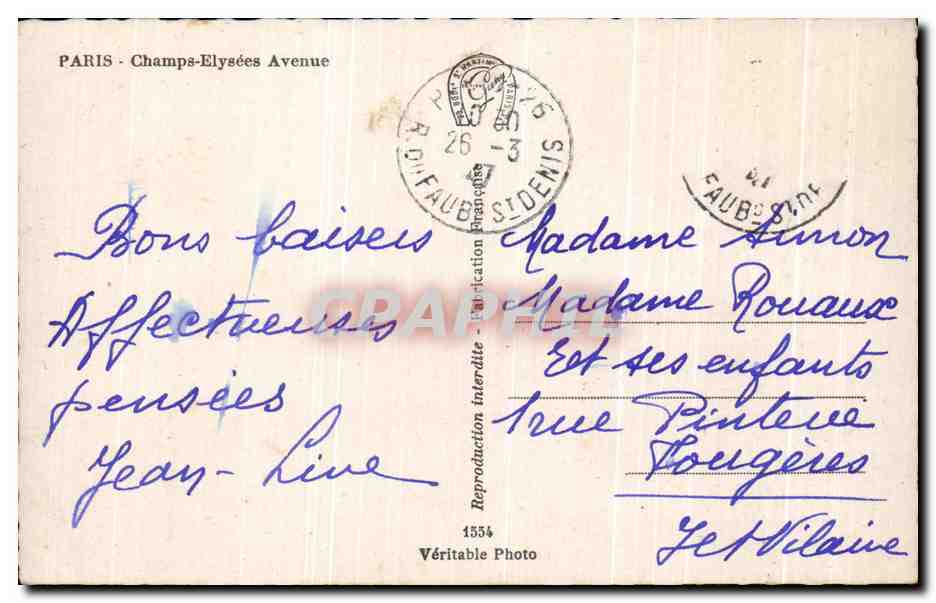 PARIS - Champs-Elysées Avenue
Bons baisers
Affectueuses
pensées
Jean - Line
Reproduction interdite - Fabrication Française
1554
Véritable Photo
26 -3
47
R. DU FAUBG ST DENIS
FAUBG ST DE
Madame Simon
Madame Rouaux
Et ses enfants
1 rue Pinterie
Fougères
Il et Vilaine
GRAPHIL